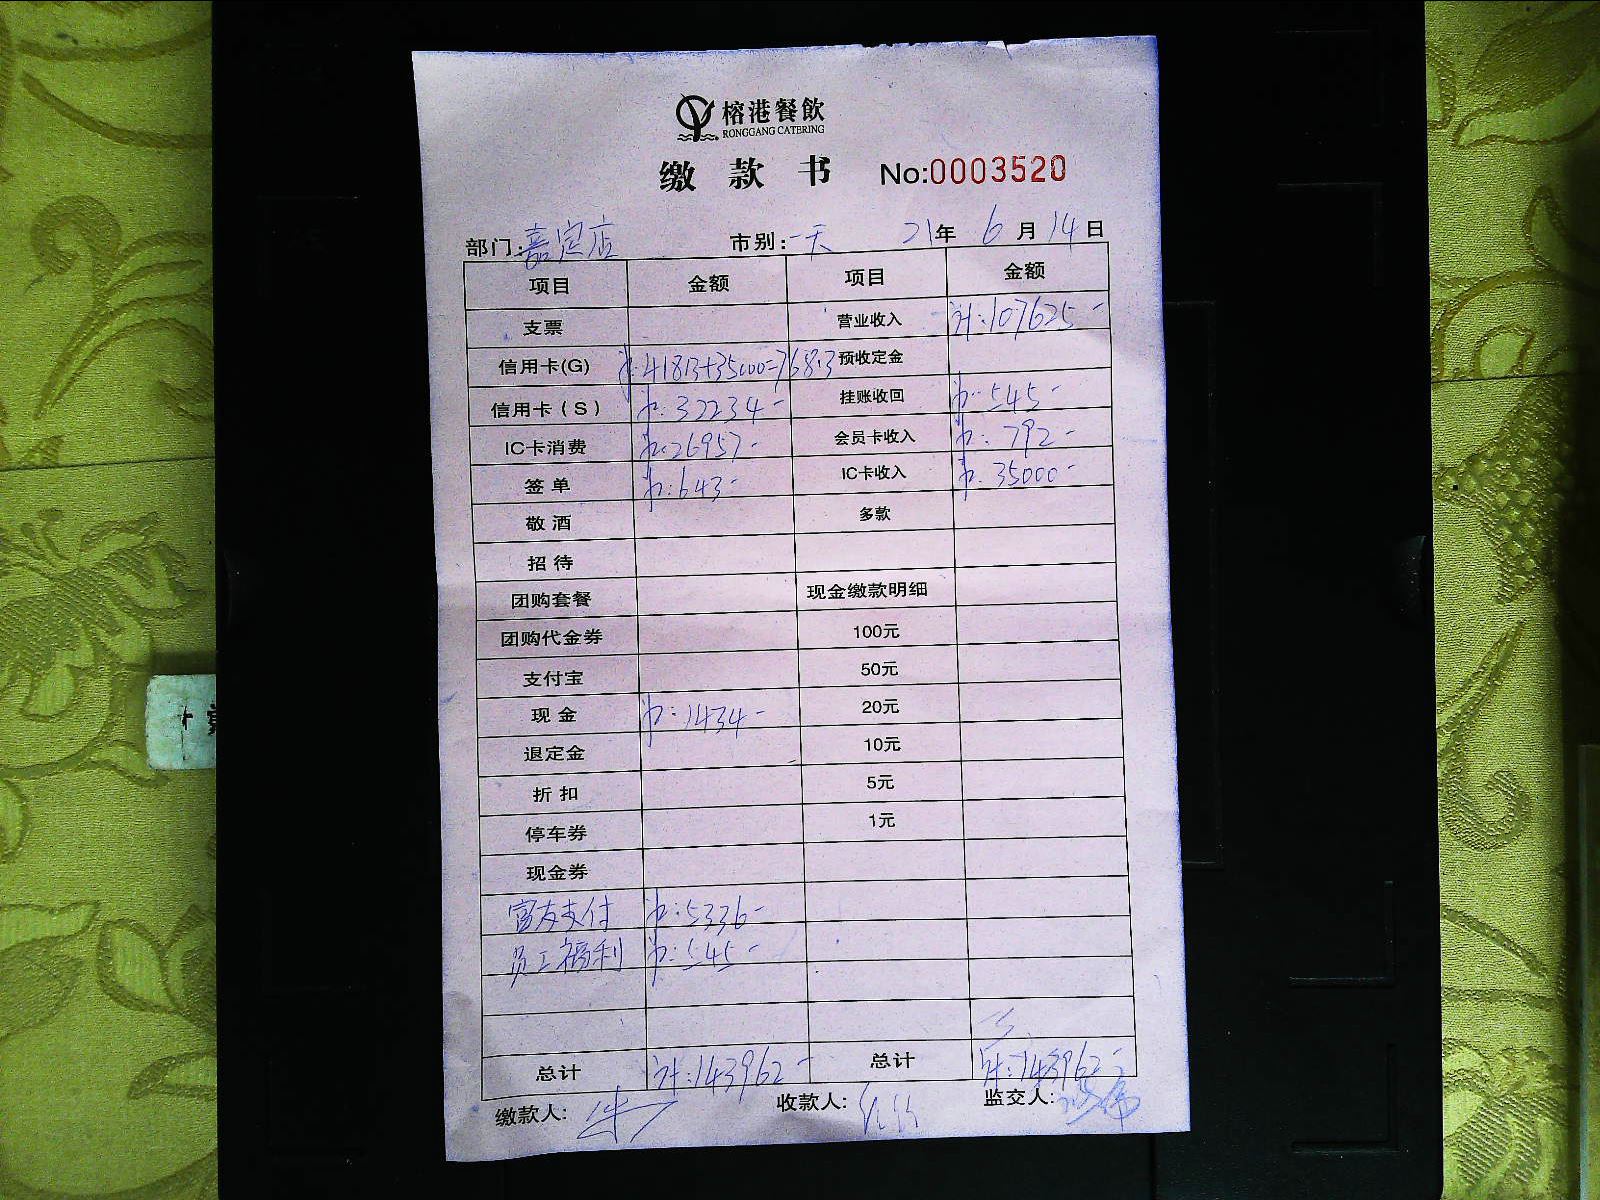 榕港餐飲
RONGGANG CATERING
缴款书 No:0003520
部门:嘉定店 市别:一天 21年6月14日
项目 金额 项目 金额
支票 营业收入 计:107625-
信用卡(G) 41813+35000=76813 预收定金
信用卡(S) 32234- 挂账收回 545-
IC卡消费 26957- 会员卡收入 792-
签单 643- IC卡收入 35000-
敬酒 多款
招待
团购套餐 现金缴款明细
团购代金券 100元
支付宝 50元
现金 1434- 20元
退定金 10元
折扣 5元
停车券 1元
现金券
富友支付 5336-
员工福利 545-
总计 计:143962- 总计 计:143962-
缴款人: 收款人: 监交人: